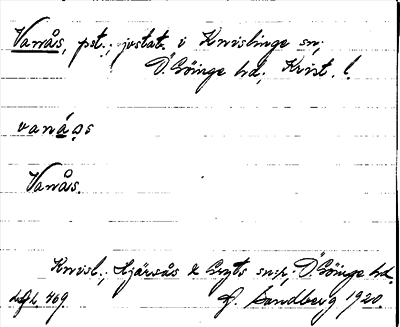 Vanås, pst.; jvstat. i Knislinge sn;
Ö. Göinge hd; Krist. l.
vanå̀s
Vanås.
Knisl.; Hjärsås & Gryts snr, Ö. Göinge hd.
469. G. Sandberg 1920.